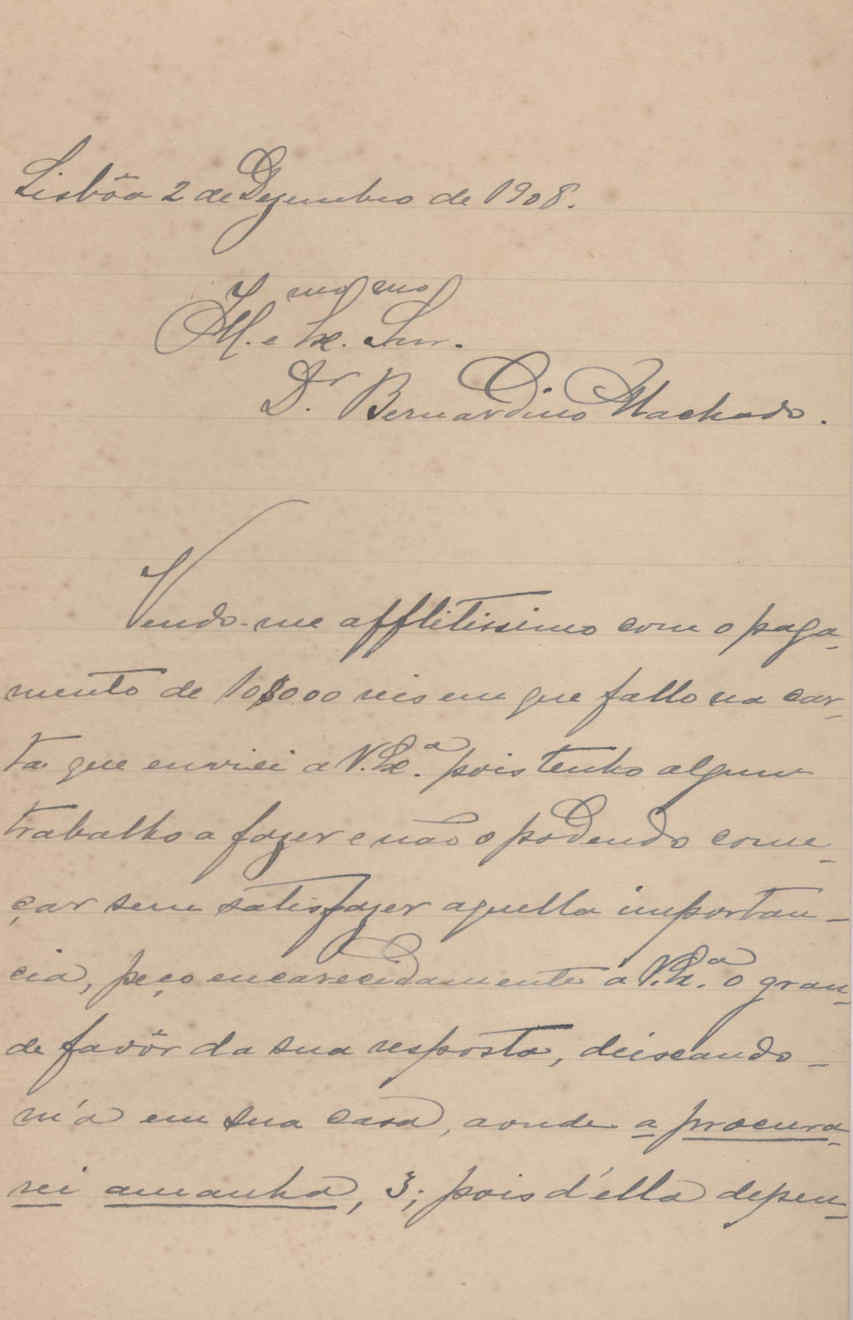 Lisbôa 2 de Dezembro de 1908.
Ill.mo e Ex.mo Snr.
Dr. Bernardino Machado.
Vendo-me afflitissimo com o paga-
mento de 10$000 reis em que fallo na car-
ta que enviei a V. Ex.ª pois tenho algum
trabalho a fazer e não o podendo come-
çar sem satisfazer aquella importan-
cia, peço encarecidamente a V. Ex.ª o gran-
de favôr da sua resposta, deixando-
m'a em sua casa, aonde a procura-
rei amanhã, 3; pois d'ella depen-